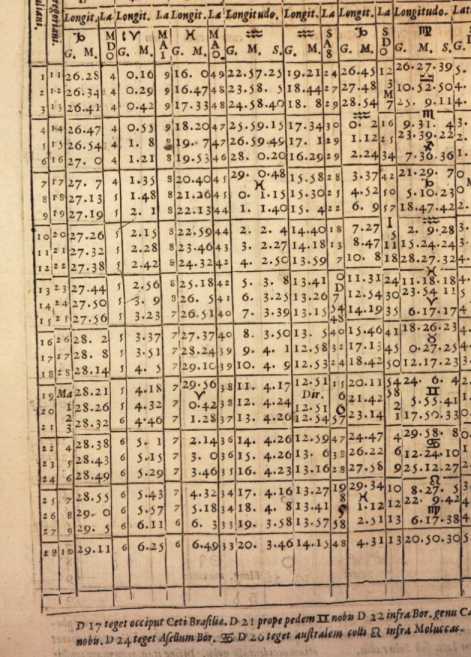 Longit. La Longit. La Longit. La Longitudo. Longit. La Longit. La Longitudo. Lat
♑ S ♈ M ♓ M ♒ ♒ S ♑ S ♍
G. M. D O G. M. A I G. M. A O G. M. S. G. M. A 8 G. M. D O G. M. S. G.
1 11 26.28 4 0.16 9 16. 0 49 22.57.25 19.21 24 26.45 12 26.27.39
2 12 26.34 4 0.29 9 16.47 48 23.58. 5 18.44 27 27.48 3 10.52.50 4.
3 13 26.41 4 0.42 9 17.33 48 24.58.40 18. 8 29 28.54 7 25. 9.11 4.
4 14 26.47 4 0.55 9 18.20 47 25.59.15 17.34 30 0. 2 16 9.31. 4 3.
5 15 26.54 4 1. 8 19. 7 47 26.59.49 17. 1 29 1.12 25 23.39.22
6 16 27. 0 4 1.21 8 19.53 46 28. 0.20 16.29 29 2.24 34 7.36.36
7 17 27. 7 4 1.35 8 20.40 45 29. 0.48 15.58 28 3.37 42 21.29. 7
8 18 27.13 5 1.48 8 21.26 45 0. 1.15 15.30 25 4.52 50 5.10.23
9 19 27.19 5 2. 1 8 22.13 44 1. 1.40 15. 4 22 6. 9 57 18.47.42
10 20 27.26 5 2.15 8 22.59 44 2. 2. 4 14.40 18 7.27 2. 9.28
11 21 27.32 5 2.28 8 23.46 43 3. 2.27 14.18 13 8.47 11 15.24.24
12 22 27.38 5 2.42 8 24.32 42 4. 2.50 13.59 7 10. 8 18 28.27.32
13 23 27.44 5 2.56 8 25.18 42 5. 3. 8 13.41 0 11.31 24 11.18.18
14 24 27.50 5 3. 9 8 26. 5 41 6. 3.25 13.26 7 12.54 30 23.54.11
15 25 27.56 5 3.23 7 26.51 40 7. 3.39 13.15 14.19 35 6.17.17
16 26 28. 2 5 3.37 7 27.37 40 8. 3.50 13. 5 40 15.46 41 18.26.23
17 27 28. 8 5 3.51 7 28.24 39 9. 4. 1 12.58 32 17.13 45 0.27.25
18 28 28.14 5 4. 5 7 29.10 39 10. 4. 9 12.53 24 18.42 50 12.17.23
19 Ma 28.21 5 4.18 7 29.56 38 11. 4.17 12.51 15 20.11 54 24. 6. 4
20 1 28.26 5 4.32 7 0.42 38 12. 4.24 Dir. 12.51 6 21.42 58 5.55.41
21 2 28.32 6 4.46 7 1.28 37 13. 4.26 12.54 57 23.14 1 17.50.33
22 4 28.38 6 5. 1 7 2.14 36 14. 4.26 12.59 47 24.47 4 29.58. 8
23 5 28.43 6 5.15 7 3. 0 36 15. 4.26 13. 6 38 26.22 6 12.24.10
24 6 28.49 6 5.29 7 3.46 35 16. 4.23 13.16 28 27.58 9 25.12.27
25 7 28.55 6 5.43 7 4.32 34 17. 4.16 13.27 19 29.34 10 8.27. 5
26 8 29. 0 6 5.57 7 5.18 34 18. 4. 8 13.41 9 1.12 12 22. 9.42
27 9 29. 5 6 6.11 6 6. 3 33 19. 3.58 13.57 58 2.51 13 6.17.38
28 10 29.11 6 6.25 6 6.49 33 20. 3.46 14.15 48 4.31 13 20.50.30
D 17 teget occiput Ceti Brasiliæ. D 21 prope pedem ♊ nobis D 22 infra Bor. genu
nobis. D 24 teget Asellum Bor. ♋ D 26 teget australem colli ♌ infra Moluccas.